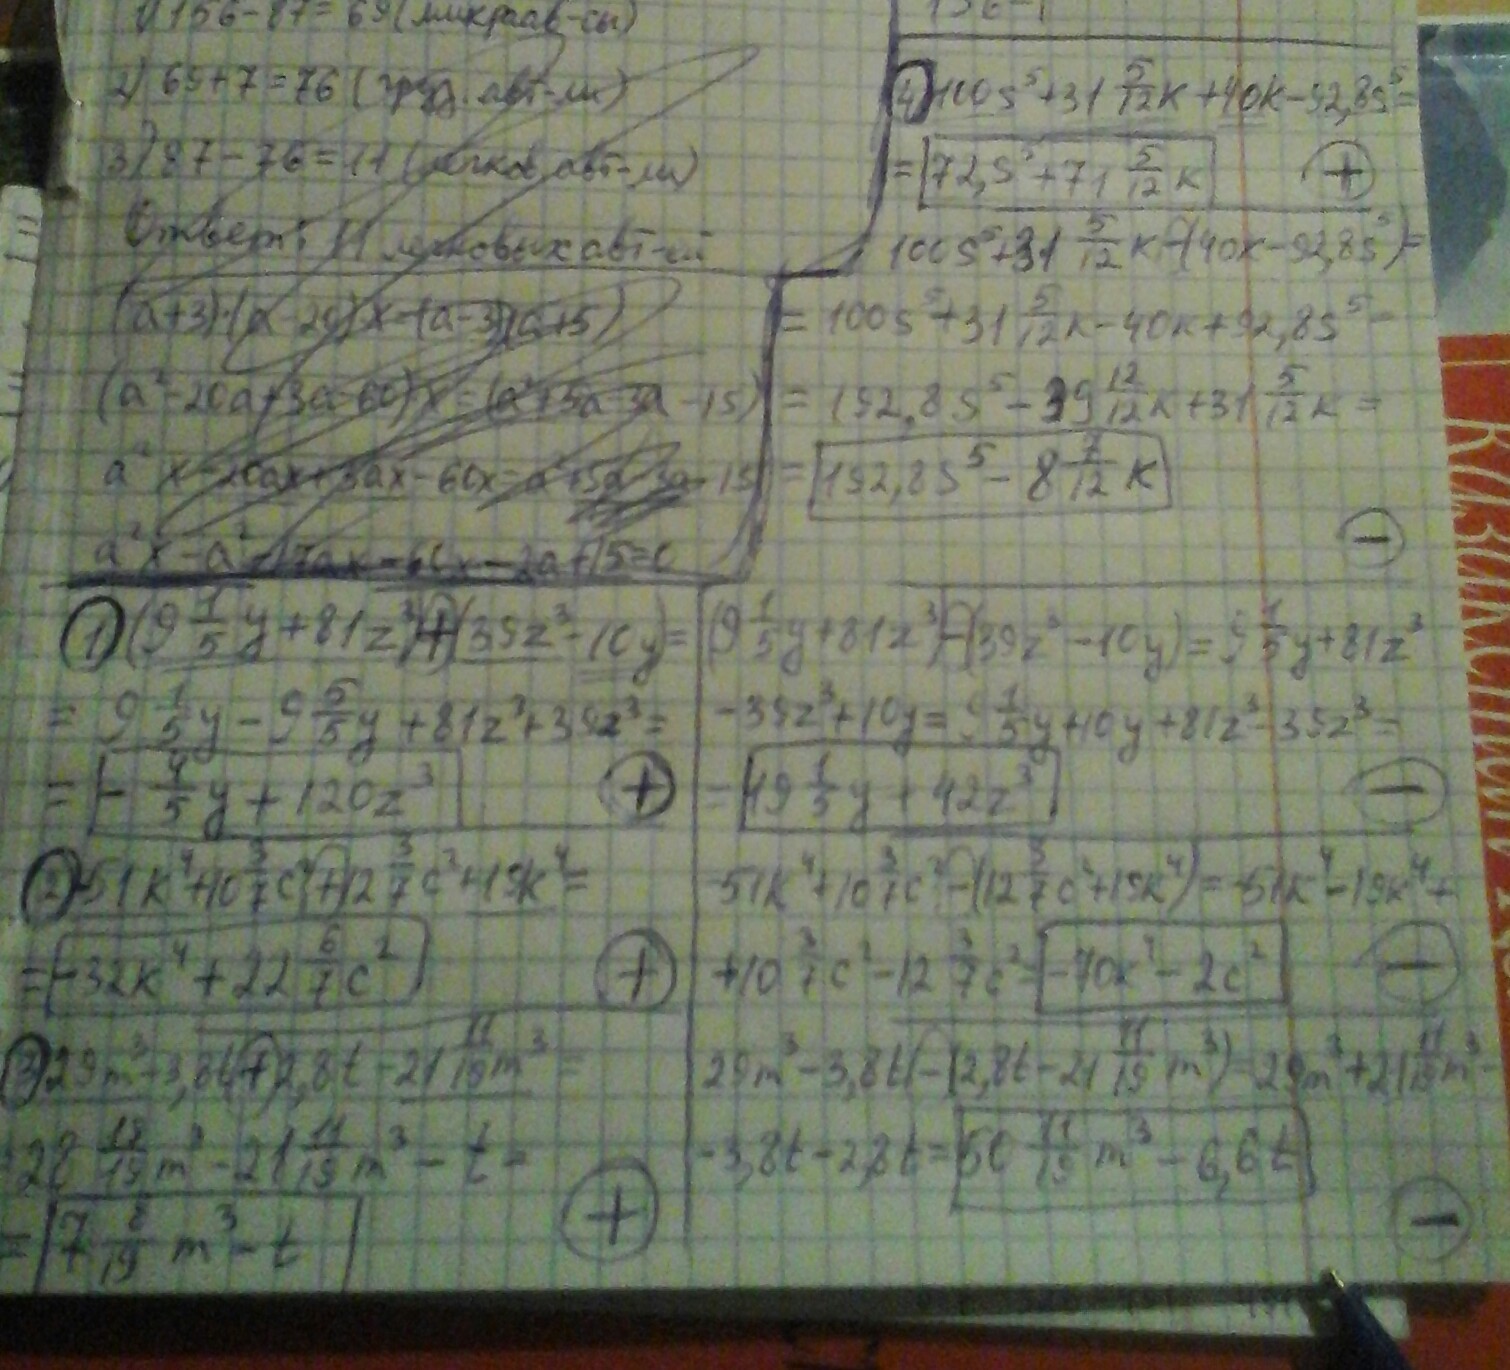 1) 156-87=69 (микроав-сы)
2) 69+7=76 (груз. авт-ли)
3) 87-76=11 (легков. авт-ли)
Ответ: 11 легковых авт-ей
(a+3)·(a-20)x=(a-3)(a+5)
(a²-20a+3a-60)x=(a²+5a-3a-15)
a²x-20ax+3ax-60x=a²+5a-3a-15
a²x-a²-17ax-60x-2a+15=0
4) 100s⁵+31 5/12 k+40k-92,8s⁵=
= 72,s⁵+71 5/12 k
+
100s⁵+31 5/12 k-(40k-92,8s⁵)=
= 100s⁵+31 5/12 k-40k+92,8s⁵=
= 192,8s⁵-39 12/12 k+31 5/12 k=
= 192,8s⁵-8 7/12 k
-
1) (9 1/5 y+81z³)+(39z³-10y)=
= 9 1/5 y-9 5/5 y+81z³+39z³=
= -4/5 y+120z³
+
(9 1/5 y+81z³)-(39z³-10y)=9 1/5 y+81z³
-39z³+10y=9 1/5 y+10y+81z³-39z³=
= 19 1/5 y+42z³
-
2) -51k⁴+10 3/7 c²+12 3/7 c²+19k⁴=
= -32k⁴+22 6/7 c²
+
-51k⁴+10 3/7 c²-(12 3/7 c²+19k⁴)=-51k⁴-19k⁴+
+10 3/7 c²-12 3/7 c²=-70k⁴-2c²
-
3) 29m³-3,8t+2,8t-21 11/19 m³=
=28 19/19 m³-21 11/19 m³-t=
= 7 8/19 m³-t
+
29m³-3,8t-(2,8t-21 11/19 m³)=29m³+21 11/19 m³-
-3,8t-2,8t=50 11/19 m³-6,6t
-
КАЗАХСТАН